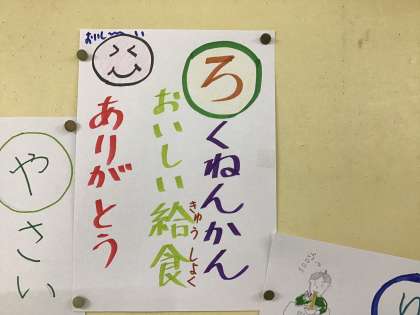 ろくねんかん
おいしい給食
きゅうしょく
ありがとう
おいしーい
やさい